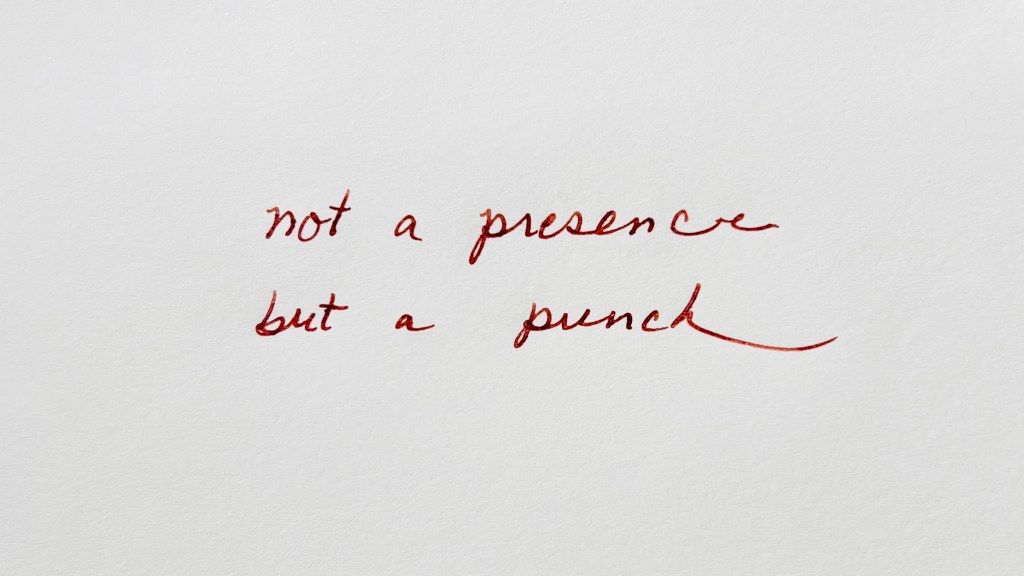 not a presence
but a punch